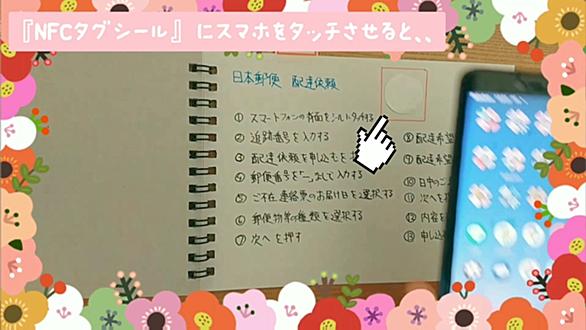 『NFCタグシール』にスマホをタッチさせると、、
日本郵便 配達依頼
① スマートフォンの背面をシールにタッチする
② 追跡番号を入力する
③ 配達依頼を申込むを
④ 郵便番号を"-"なしで入力する
⑤ ご不在連絡票のお届け日を選択する
⑥ 郵便物等の種類を選択する
⑦ 次へを押す
⑧ 配達希望
⑨ 配達希望
⑩ 日中のご
⑪ 次へを
⑫ 内容を
⑬ 申し込